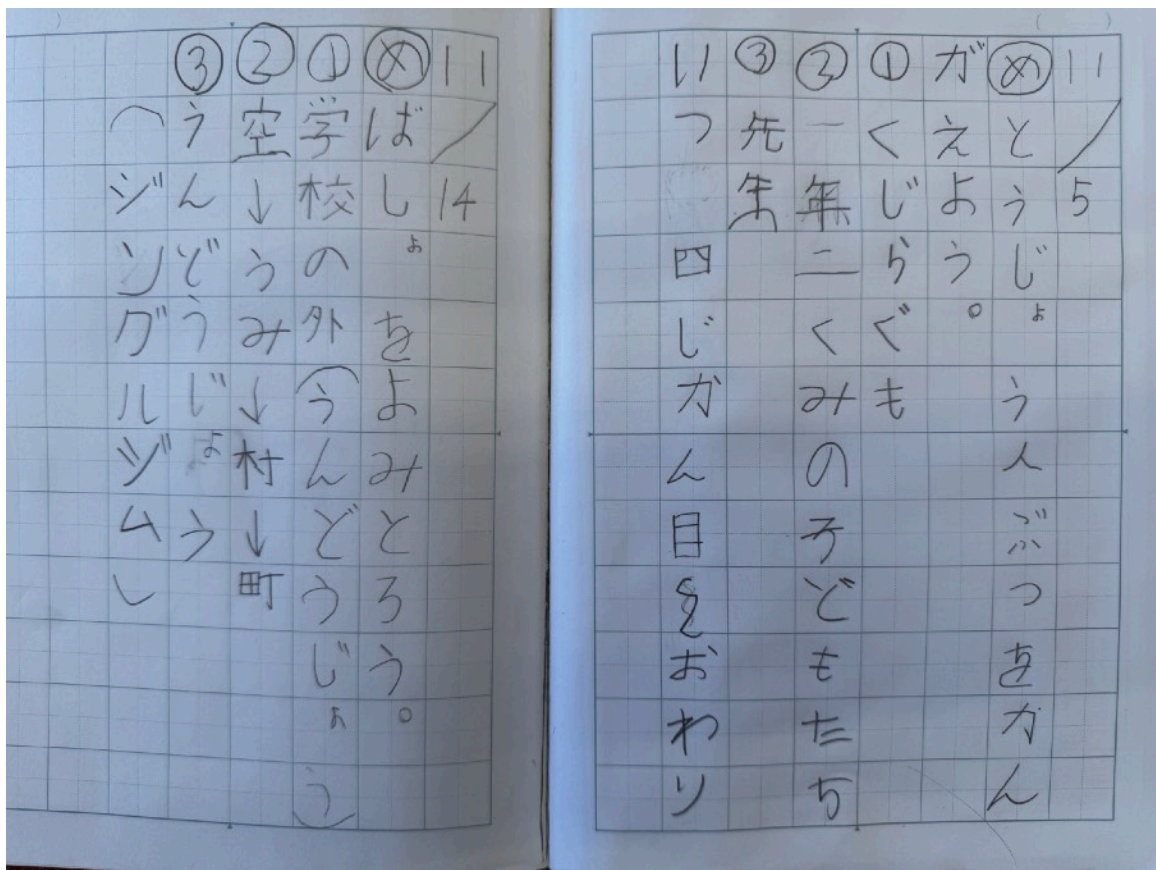 11/5
めとうじょう人ぶつをかん
がえよう。
①くじらぐも
②一年二くみの子どもたち
③先生
いつ四じかん目をおわり
11/14
めばしょをよみとろう。
①学校の外(うんどうじょう)
②空→うみ→村→町
③うんどうじょう
(ジングルジム